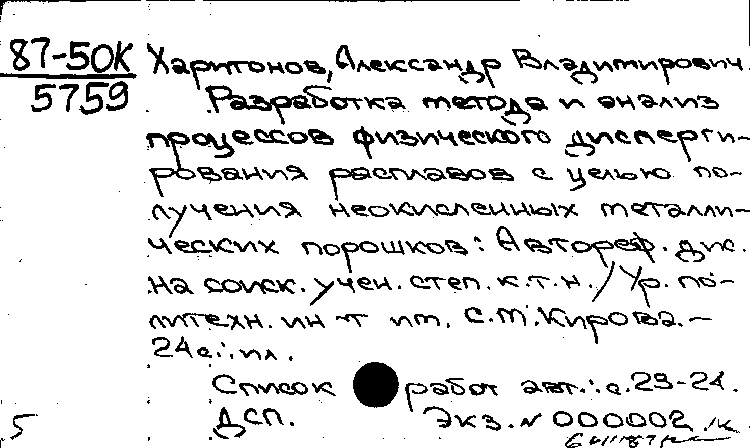 87-50К Харитонов, Александр Владимирович
5759 Разработка метода и анализ
процессов физического дисперги-
рования расплавов с целью по-
лучения неокисленных металли-
ческих порошков: Автореф. дис.
на соиск. учен. степ. к.т.н. / Ур. по-
литехн. ин-т им. С.М. Кирова. -
24с.: ил.
Список работ авт.: с. 23-24.
ДСП. Экз. N 000002
5